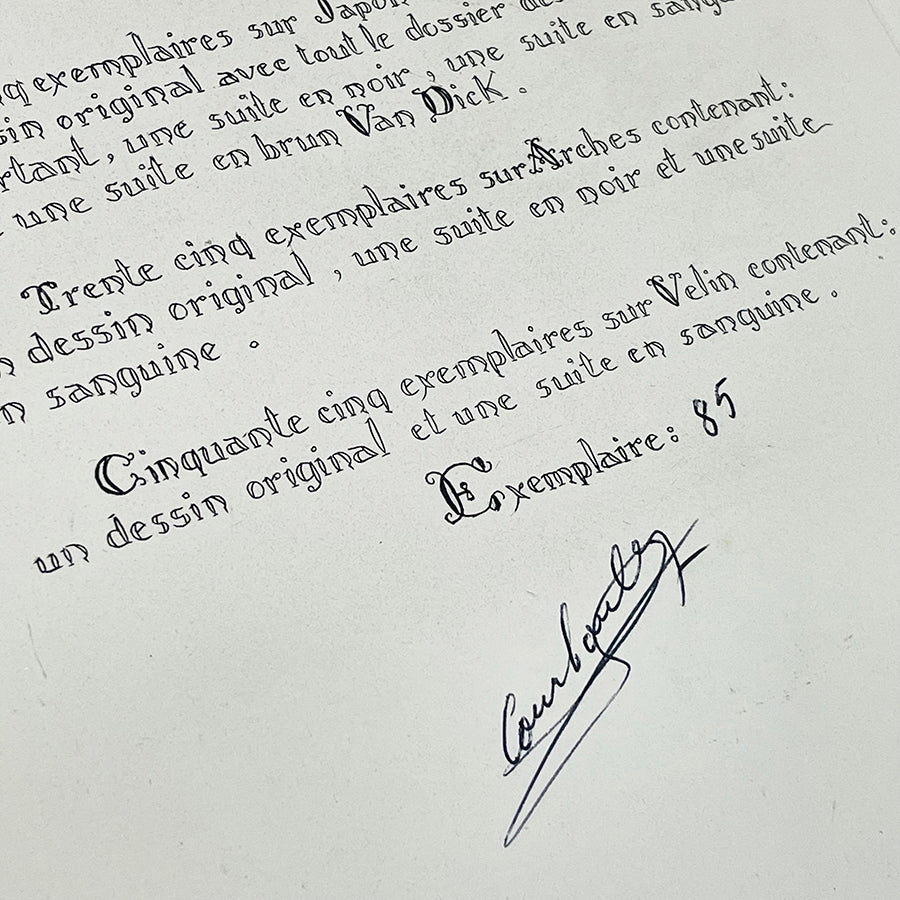 exemplaires sur Japon
original avec tout le dossier
une suite en noir, une suite en
une suite en brun Van Dick.
Trente cinq exemplaires sur Arches contenant:
dessin original, une suite en noir et une suite
sanguine.
Cinquante cinq exemplaires sur Velin contenant:
un dessin original et une suite en sanguine.
Exemplaire: 85